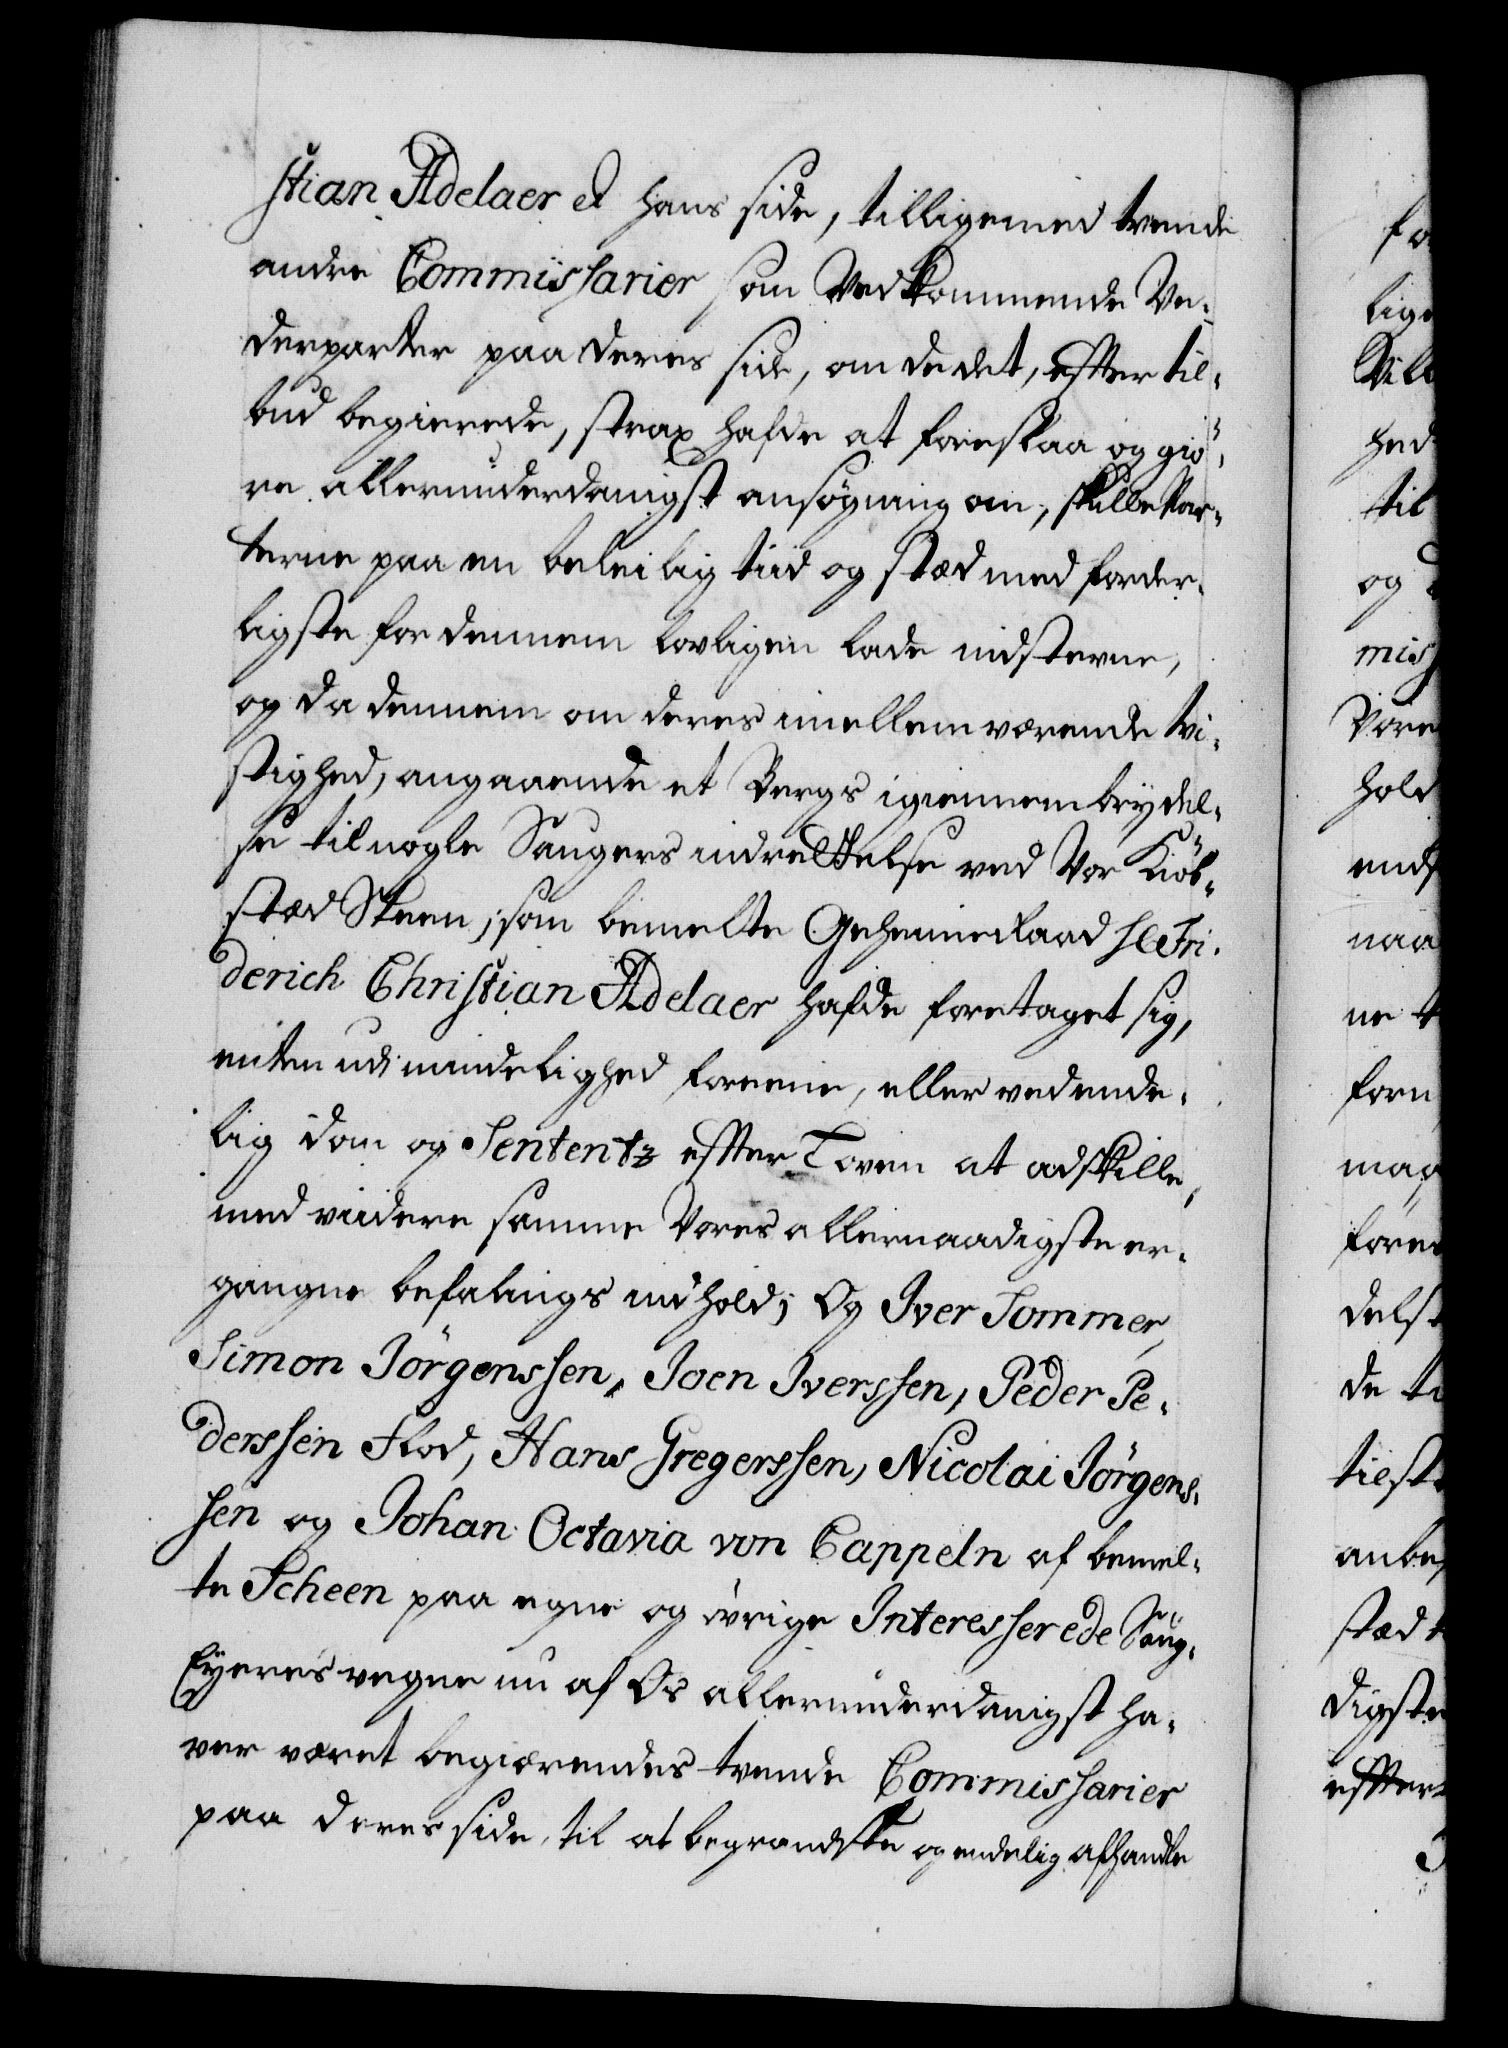 stian Adelaer el hans side, tilligemed tvende
andre Commissarier som Vedkommende Ve-
derparter paa deres side, om de det, efter til-
bud begierede, strax hafde at foreslaa og giö-
re allerunderdanigst ansøgning om, skulle Par-
terne paa en beleilig tiid og stæd med forder-
ligste for dennem lovligen lade indstevne,
og da dennem om deres imellem værende tvi-
stighed, angaaende et Bergs igiennembrydel-
se til nogle Saugers indrettelse ved Vor Kiöb-
stæd Skeen, som bemelte Geheimeraad Hr Fri-
derich Christian Adelaer hafde foretaget sig,
enten udi mindelighed foreene, eller ved ende-
lig dom og Sententz effter Loven at adskille,
med viidere samme Vores allernaadigste er-
gangne befalings indhold; Og Iver Sommer,
Simon Jörgenssen, Joen Iverssen, Peder Pe-
derssen Flod, Hans Gregerssen, Nicolai Jörgens-
sen og Johan Octavia von Cappeln af bemel-
te Scheen paa egne og övrige Interesserede Saug-
Eyeres vegne nu af Os allerunderdanigst ha-
ver været begiærendes tvende Commissarier
paa deres side, til at begrandske og endelig afhandle